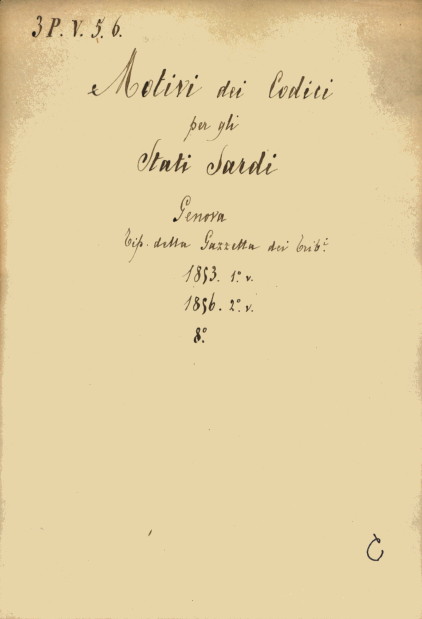 3 P. V. 5. 6.
Motivi dei Codici
per gli
Stati Sardi
Genova
Tip. della Gazzetta dei Trib.i
1853. 1.° v.
1856. 2.° v.
8.°
C